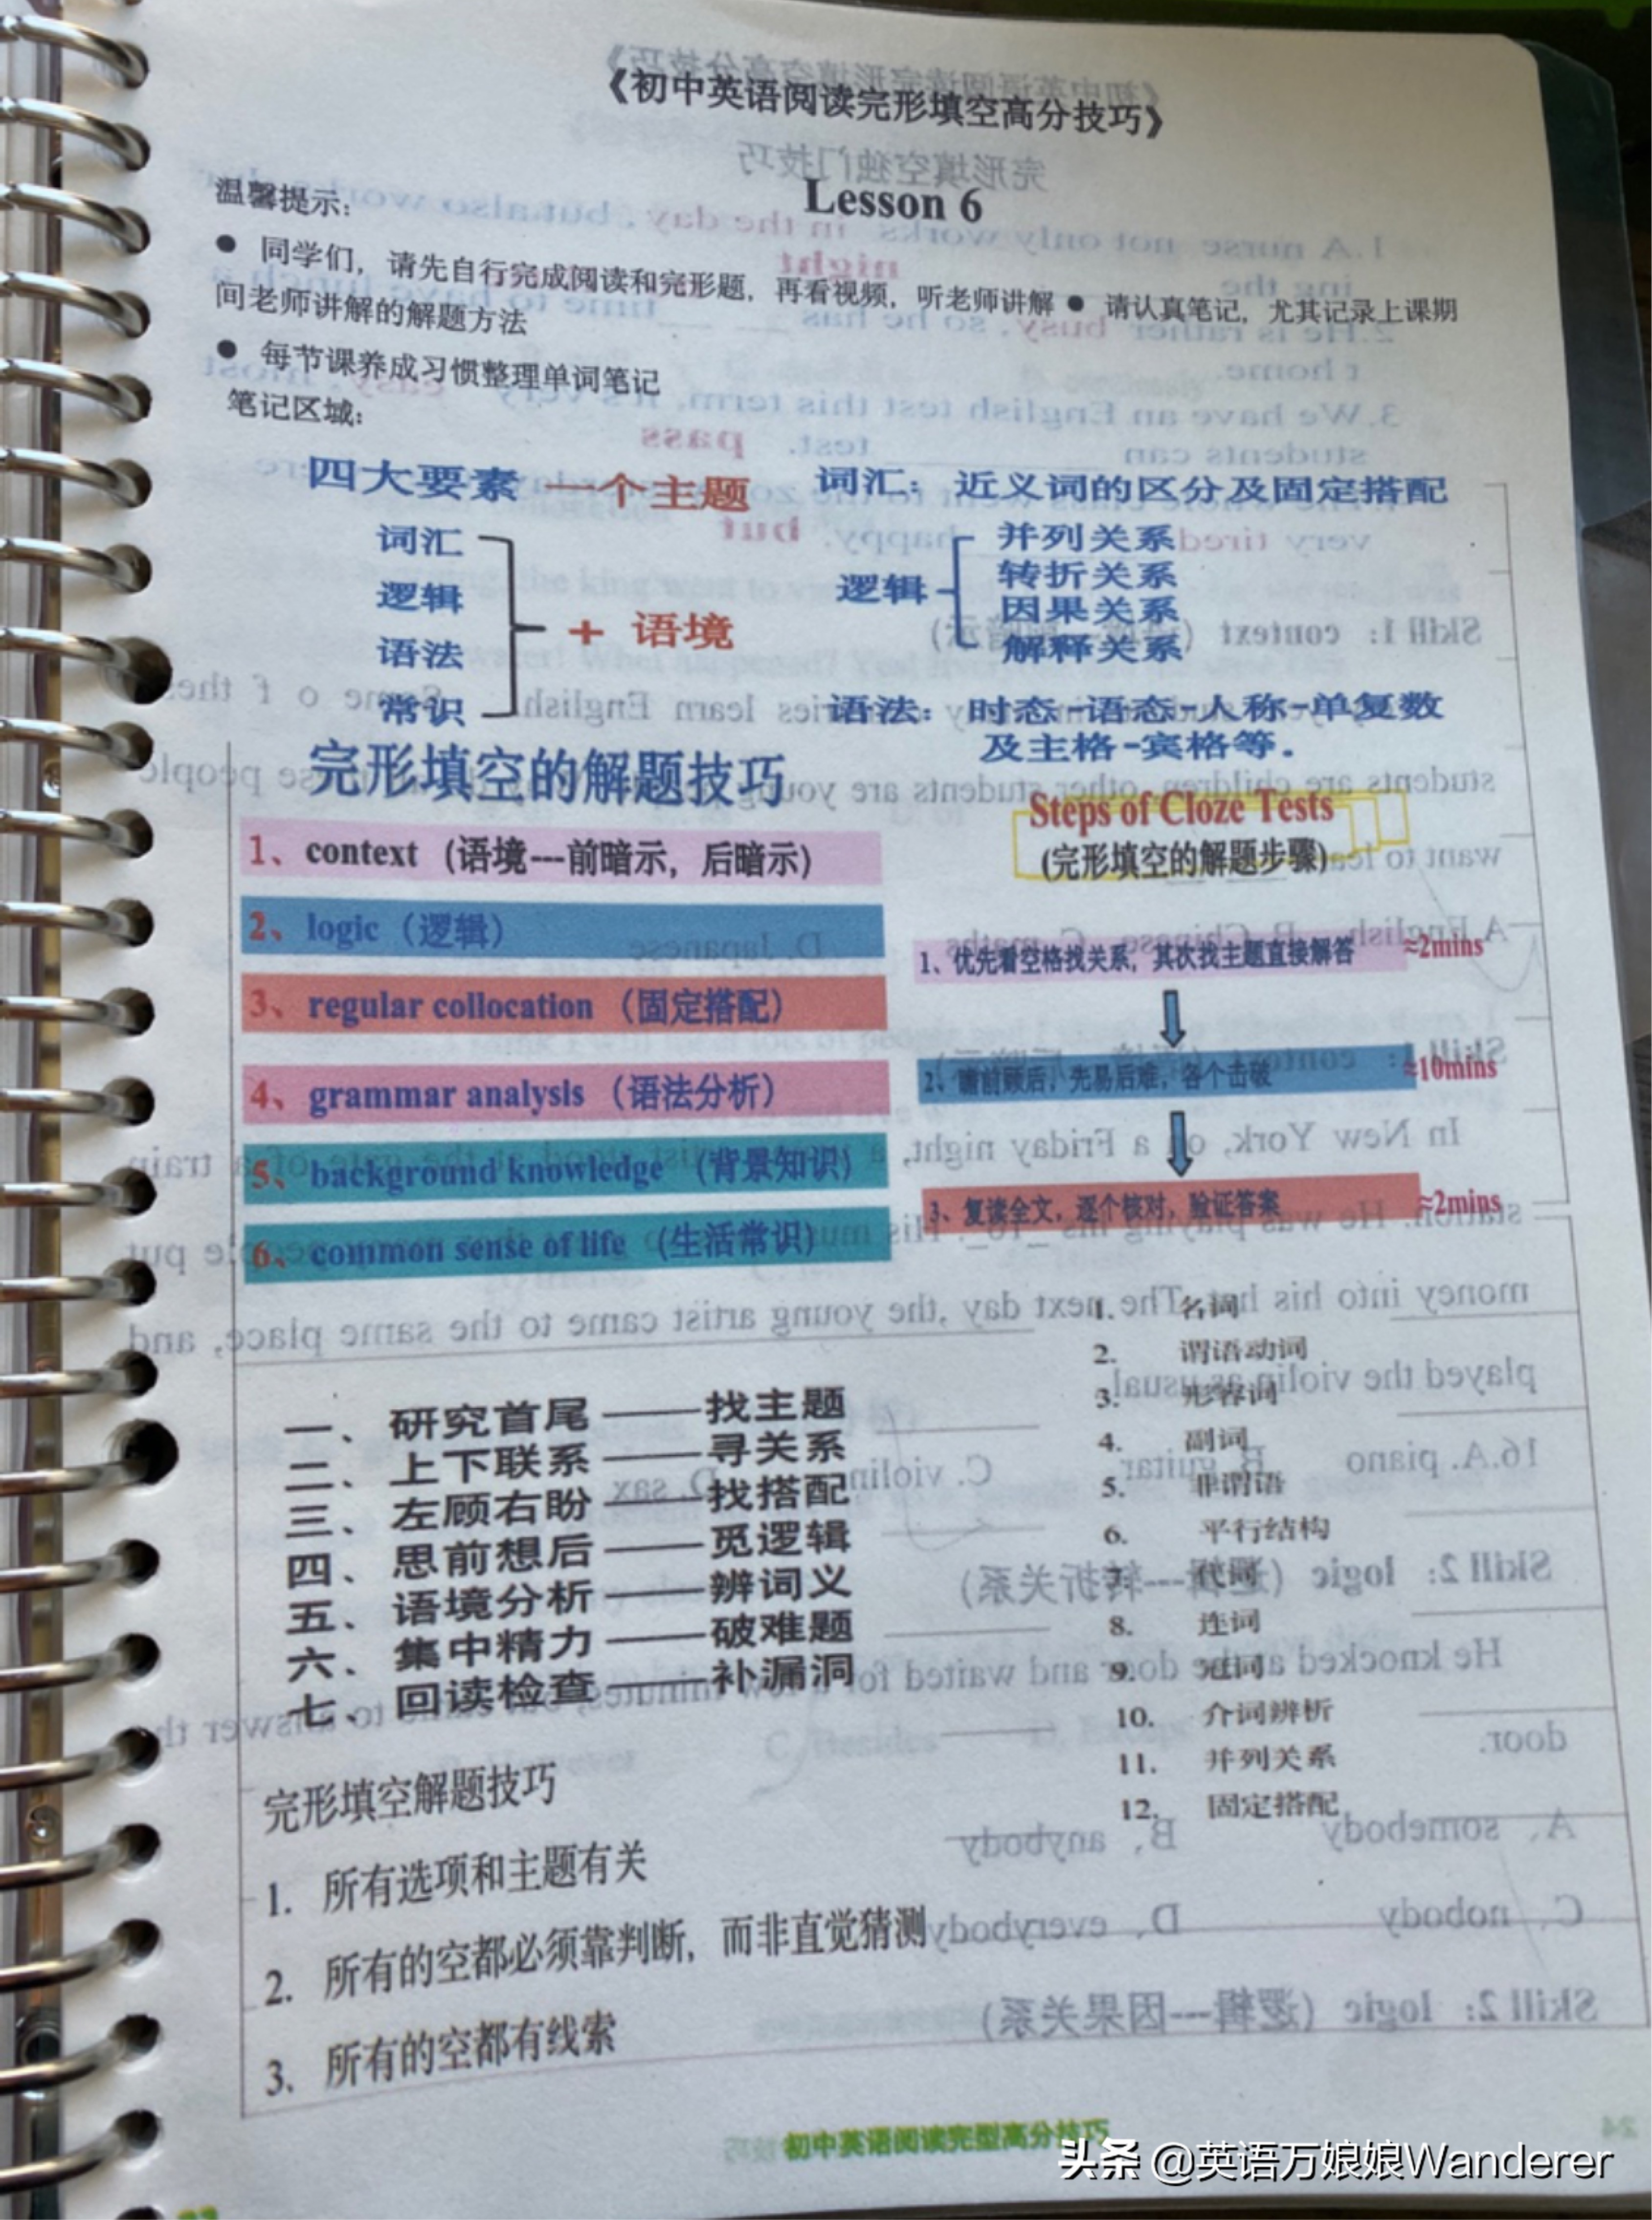 《初中英语阅读完形填空高分技巧》
Lesson 6
温馨提示：
● 同学们，请先自行完成阅读和完形题，再看视频，听老师讲解 ● 请认真笔记，尤其记录上课期
间老师讲解的解题方法
● 每节课养成习惯整理单词笔记
笔记区域：
四大要素 一个主题
词汇
逻辑
语法
常识
+ 语境
词汇：近义词的区分及固定搭配
逻辑
并列关系
转折关系
因果关系
解释关系
语法：时态-语态-人称-单复数
及主格-宾格等.
完形填空的解题技巧
1、context (语境---前暗示，后暗示)
2、logic（逻辑）
3、regular collocation（固定搭配）
4、grammar analysis（语法分析）
5、background knowledge（背景知识）
6、common sense of life （生活常识）
Steps of Cloze Tests
(完形填空的解题步骤)
1、优先看空格找关系，其次找主题直接解答 ≈2mins
2、瞻前顾后，先易后难，各个击破 ≈10mins
3、复读全文，逐个核对，验证答案 ≈2mins
一、研究首尾——找主题
二、上下联系——寻关系
三、左顾右盼——找搭配
四、思前想后——觅逻辑
五、语境分析——辨词义
六、集中精力——破难题
七、回读检查——补漏洞
1. 名词
2. 谓语动词
3. 形容词
4. 副词
5. 非谓语
6. 平行结构
7. 代词
8. 连词
9. 冠词
10. 介词辨析
11. 并列关系
12. 固定搭配
完形填空解题技巧
1. 所有选项和主题有关
2. 所有的空都必须靠判断，而非直觉猜测
3. 所有的空都有线索
初中英语阅读完型高分技巧
头条 @英语万娘娘Wanderer